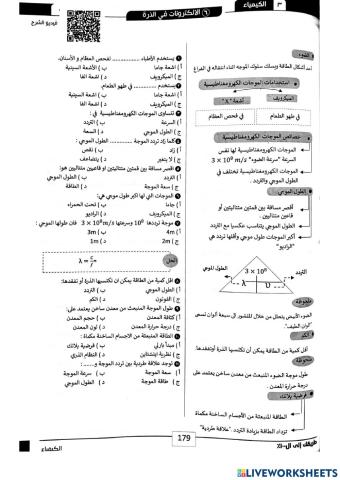 ٣
الكيمياء
٦ الإلكترونات في الذرة
فيديو الشرح
الضوء
أحد أشكال الطاقة ويسلك سلوك الموجة أثناء انتقاله في الفراغ
استخدامات الموجات الكهرومغناطيسية
الميكرويف
أشعة "X"
في طهو الطعام
في فحص العظام
خصائص الموجات الكهرومغناطيسية
الموجات الكهرومغناطيسية لها نفس
السرعة "سرعة الضوء" 3 × 10⁸ m/s
الموجات الكهرومغناطيسية تختلف في
الطول الموجي والتردد.
الطول الموجي
أقصر مسافة بين قمتين متتاليتين أو
قاعين متتاليين.
الطول الموجي يتناسب عكسيا مع التردد
أكبر الموجات طول موجي وأقلها تردد هي
"الراديو"
التردد
طول الموجي
3 × 10⁸
λ
υ
ملحوظة
الضوء الأبيض يتحلل من خلال المنشور إلى سبعة ألوان تسمى
"ألوان الطيف".
الكم
أقل كمية من الطاقة يمكن أن تكتسبها الذرة أو تفقدها.
ملحوظة
طول موجة الضوء المنبعث من معدن ساخن يعتمد على
درجة حرارة المعدن.
فرضية بلانك
الطاقة المنبعثة من الأجسام الساخنة مكماة
تزداد الطاقة بزيادة التردد. "علاقة طردية"
يستخدم الأطباء ............ لفحص العظام و الأسنان.
أ) أشعة جاما
ب) الأشعة السينية
ج) الميكرويف
د) أشعة ألفا
يستخدم ............ في طهو الطعام.
أ) أشعة جاما
ب) الأشعة السينية
ج) الميكرويف
د) أشعة ألفا
تتساوى الموجات الكهرومغناطيسية في
أ) السرعة
ب) التردد
ج) الطول الموجي
د) السعة
كلما زاد تردد الموجة ........ الطول الموجي:
أ) زاد
ب) نقص
ج) لا يتغير
د) يتضاعف
أقصر مسافة بين قمتين متتاليتين أو قاعين متتاليين هو:
أ) التردد
ب) الطول الموجي
ج) سعة الموجة
د) الطاقة
الموجات التي لها أكبر طول موجي هي:
أ) جاما
ب) تحت الحمراء
ج) الميكرويف
د) الراديو
أ) 4m
ب) 3m
ج) 2m
د) 1m
الحل
λ = c/f
أقل كمية من الطاقة يمكن أن تكتسبها الذرة أو تفقدها:
أ) الطول الموجي
ب) التردد
ج) الفوتون
د) الكم
طول الموجة المنبعث من معدن ساخن يعتمد على:
أ) كثافة المعدن
ب) حجم المعدن
ج) درجة حرارة المعدن
د) لون المعدن
الطاقة المنبعثة من الأجسام الساخنة مكماة:
أ) مبدأ باولي
ب) فرضية بلانك
ج) نظرية اينشتاين
د) النظام الذري
توجد علاقة طردية بين تردد الموجة و ......:
أ) سعة الموجة
ب) سرعة الموجة
ج) طاقة الموجة
د) الطول الموجي
179
الكيمياء
LIVEWORKSHEETS